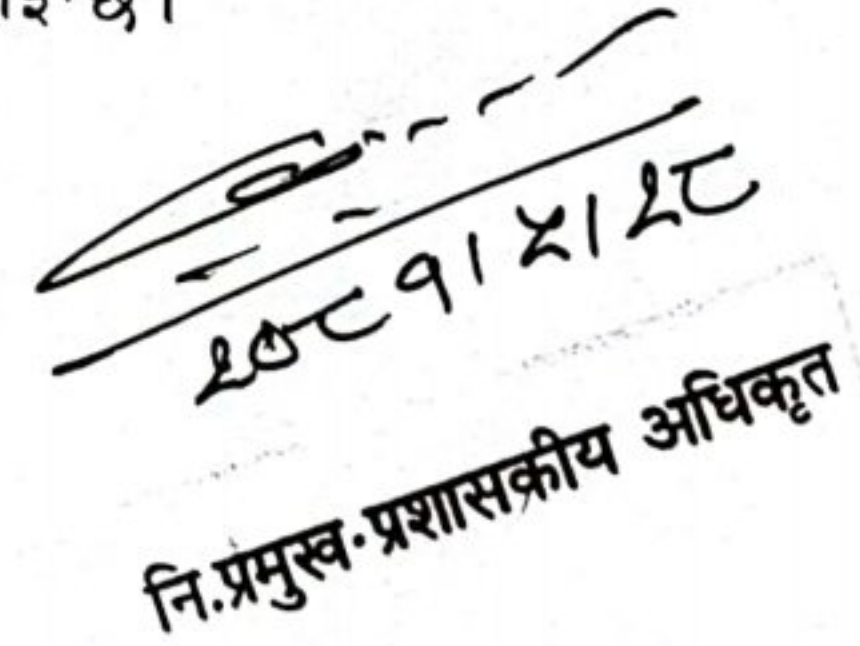 छ।
२०८१।५।२८
नि.प्रमुख.प्रशासकीय अधिकृत